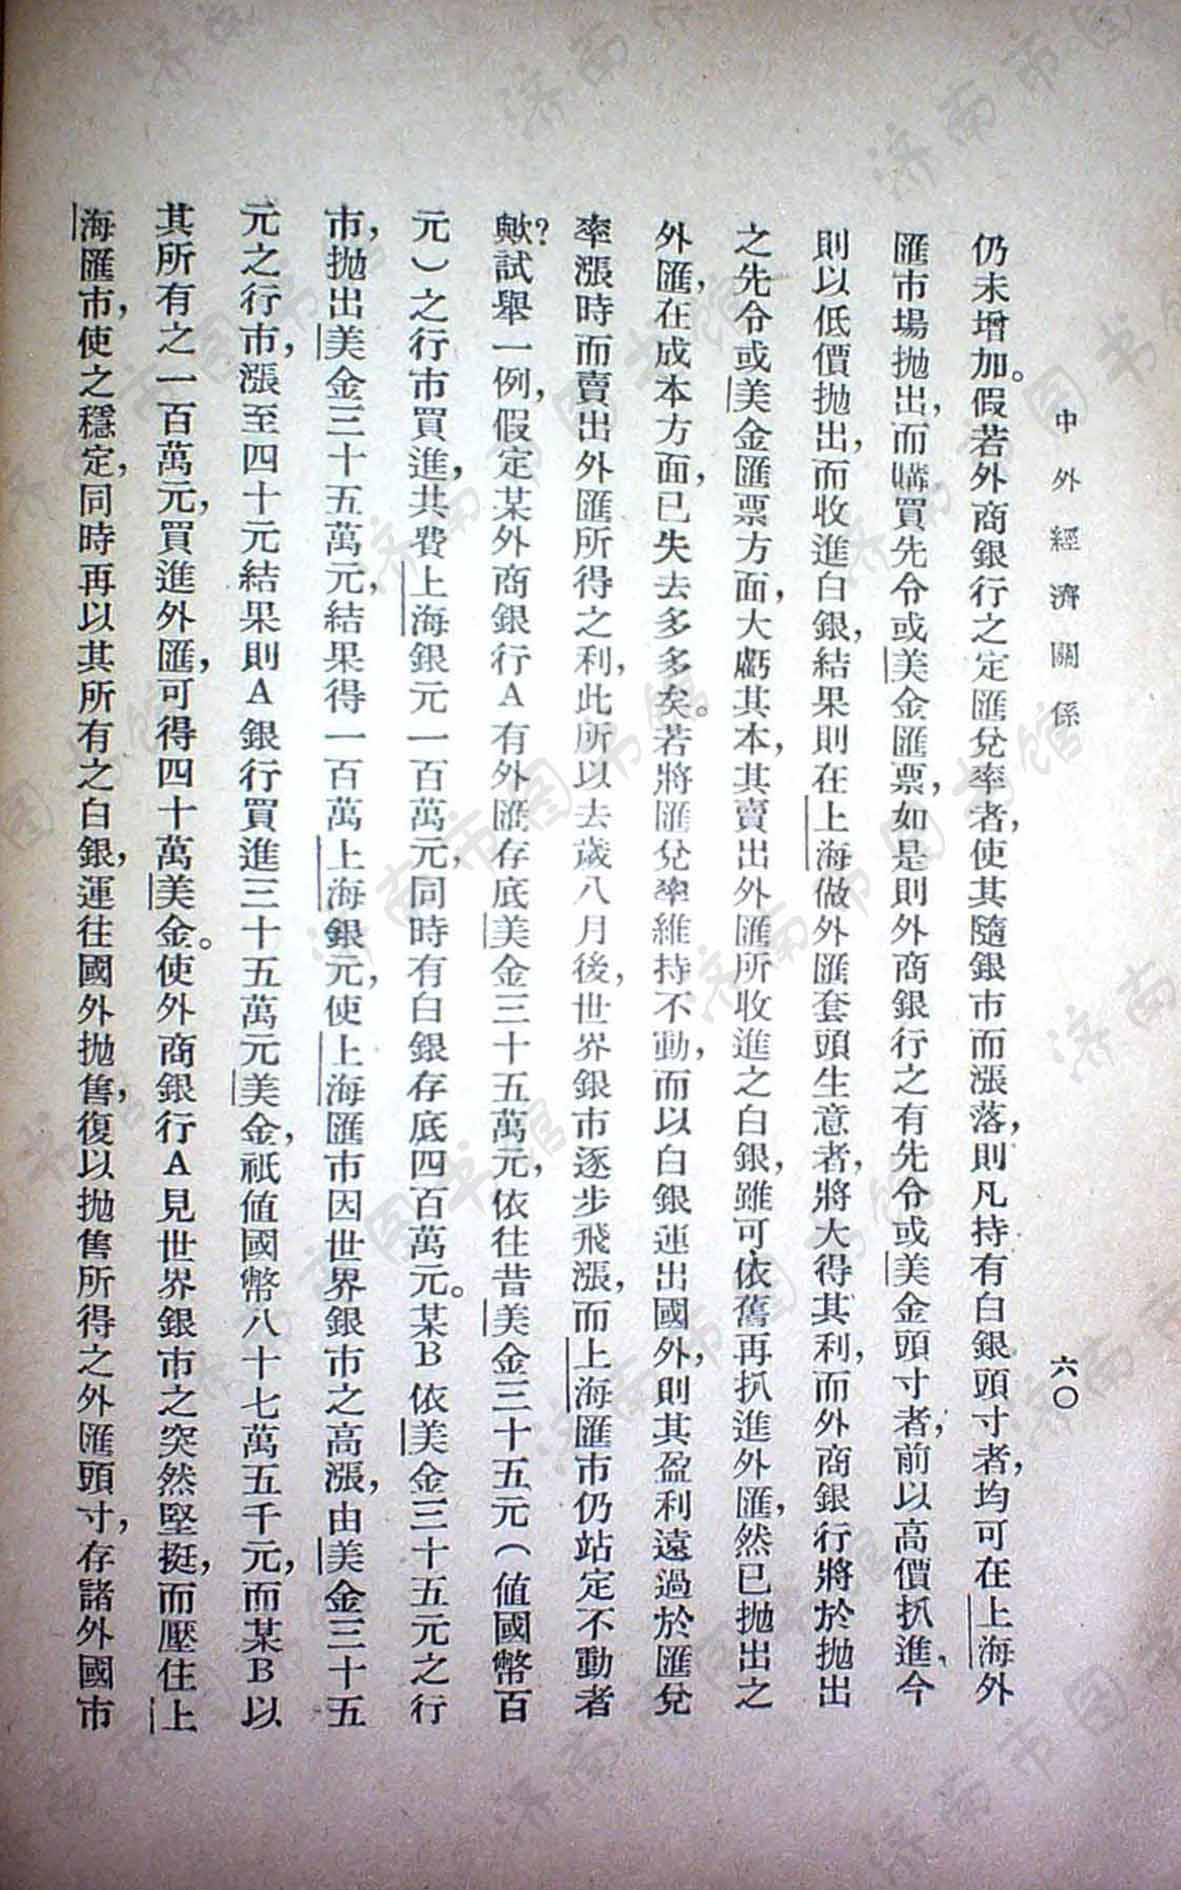 中外經濟關係
六〇
仍未增加。假若外商銀行之定匯兌率者，使其隨銀市而漲落，則凡持有白銀頭寸者，均可在上海外
匯市場拋出，而購買先令或美金匯票，如是則外商銀行之有先令或美金頭寸者，前以高價扒進，今
則以低價拋出，而收進白銀，結果則在上海做外匯套頭生意者，將大得其利，而外商銀行將於拋出
之先令或美金匯票方面，大虧其本，其賣出外匯所收進之白銀，雖可依舊再扒進外匯，然已拋出之
外匯，在成本方面，已失去多多矣。若將匯兌率維持不動，而以白銀連出國外，則其盈利遠過於匯兌
率漲時而賣出外匯所得之利，此所以去歲八月後，世界銀市逐步飛漲，而上海匯市仍站定不動者
歟？試舉一例，假定某外商銀行A有外匯存底美金三十五萬元，依往昔美金三十五元（值國幣百
元）之行市買進，共費上海銀元一百萬元，同時有白銀存底四百萬元。某B依美金三十五元之行
市，拋出美金三十五萬元，結果得一百萬上海銀元，使上海匯市因世界銀市之高漲，由美金三十五
元之行市，漲至四十元結果則A銀行買進三十五萬元美金，祇值國幣八十七萬五千元，而某B以
其所有之一百萬元，買進外匯，可得四十萬美金。使外商銀行A見世界銀市之突然堅挺，而壓住上
海匯市，使之穩定，同時再以其所有之白銀，運往國外拋售，復以拋售所得之外匯頭寸，存諸外國市
济南市图书馆